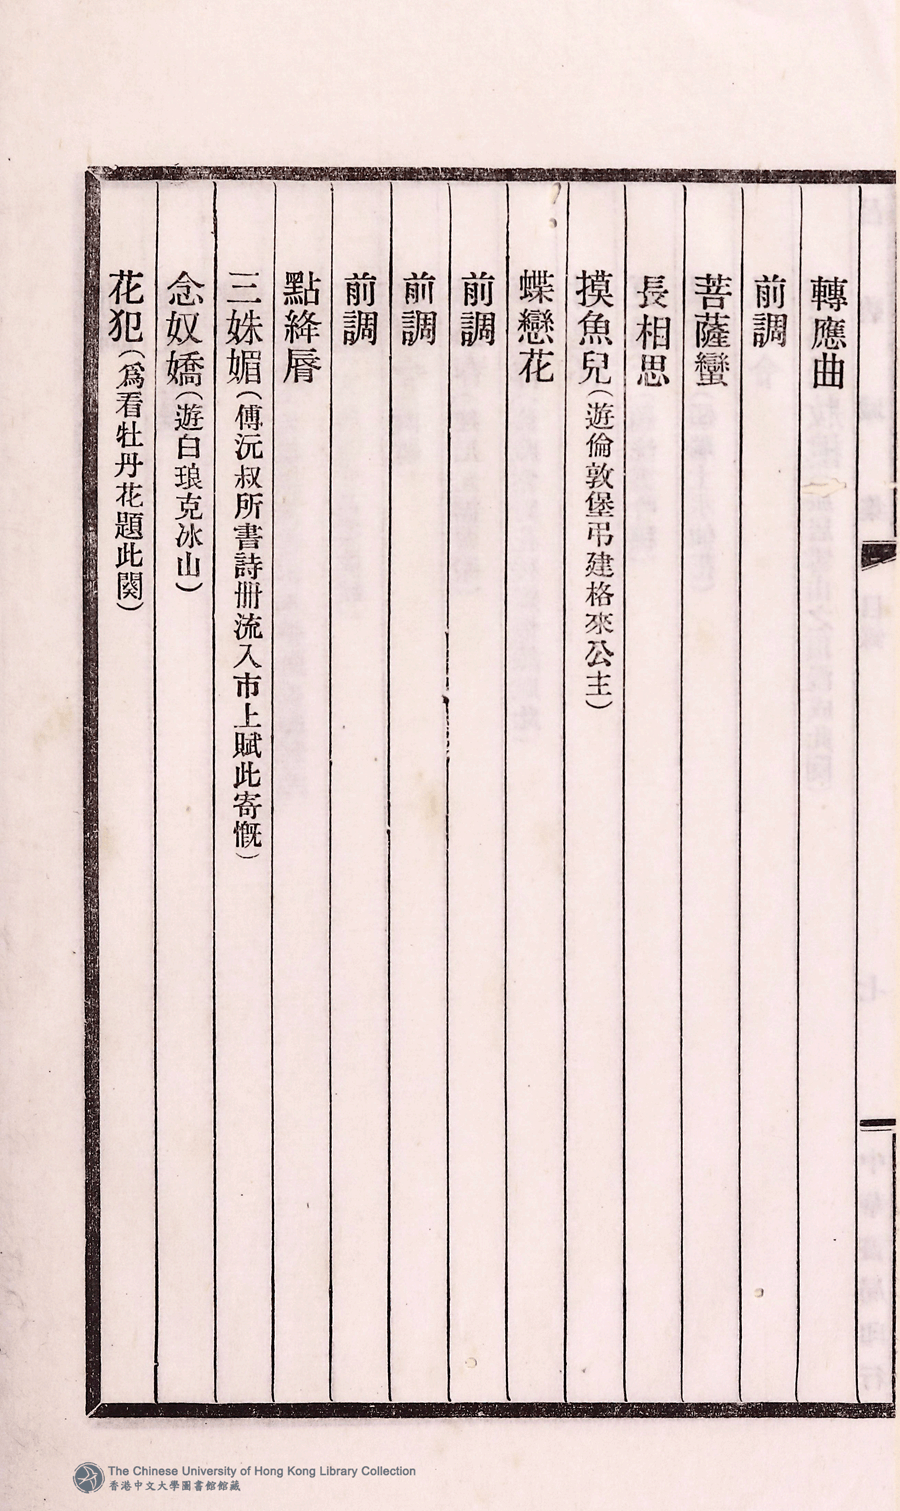 轉應曲
前調
菩薩蠻
長相思
摸魚兒(遊倫敦堡弔建格來公主)
蝶戀花
前調
前調
前調
點絳脣
三姝媚(傅沅叔所書詩冊流入市上賦此寄慨)
念奴嬌(遊白琅克冰山)
花犯(爲看牡丹花題此闋)
The Chinese University of Hong Kong Library Collection
香港中文大學圖書館館藏